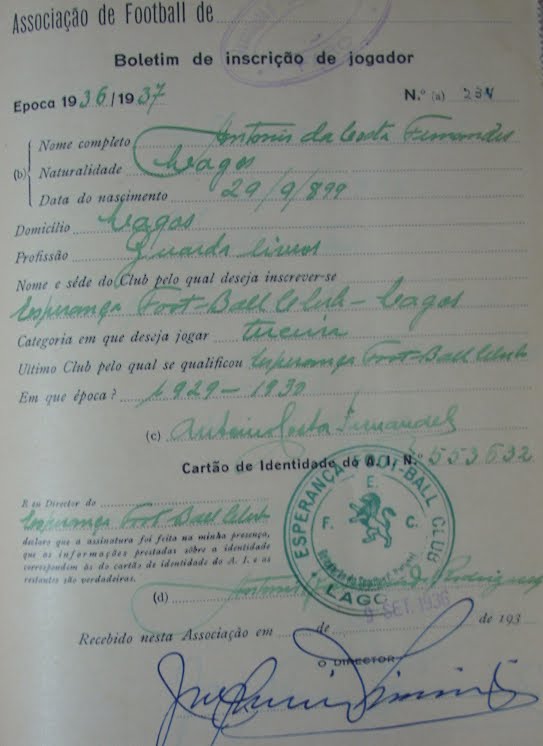 Associação de Football de
Boletim de inscrição de jogador
Epoca 1936/1937 N.º (a) 234
Nome completo Antonio da Costa Fernandes
(b) Naturalidade Lagos
Data do nascimento 29/9/899
Domicílio Lagos
Profissão Guarda livros
Nome e séde do Club pelo qual deseja inscrever-se
Esperança Foot-Ball Club - Lagos
Categoria em que deseja jogar
Ultimo Club pelo qual se qualificou Esperança Foot-Ball Club
Em que época? 1929-1930
(c) Antonio Costa Fernandes
Cartão de Identidade do A. I. N.º 553632
E eu Director do
Esperança Foot Ball Club
declaro que a assinatura foi feita na minha presença,
que as informações prestadas sôbre a identidade
correspondem às do cartão de identidade do A. I. e as
restantes são verdadeiras.
ESPERANÇA FOOT-BALL CLUB
E.
F. C.
LAGOS
(d) Antonio Rodrigues
9 SET. 1936
Recebido nesta Associação em de de 193
O DIRECTOR